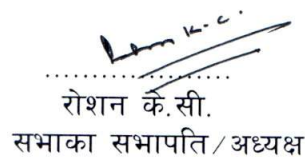 ....................................
रोशन के.सी.
सभाका सभापति/अध्यक्ष